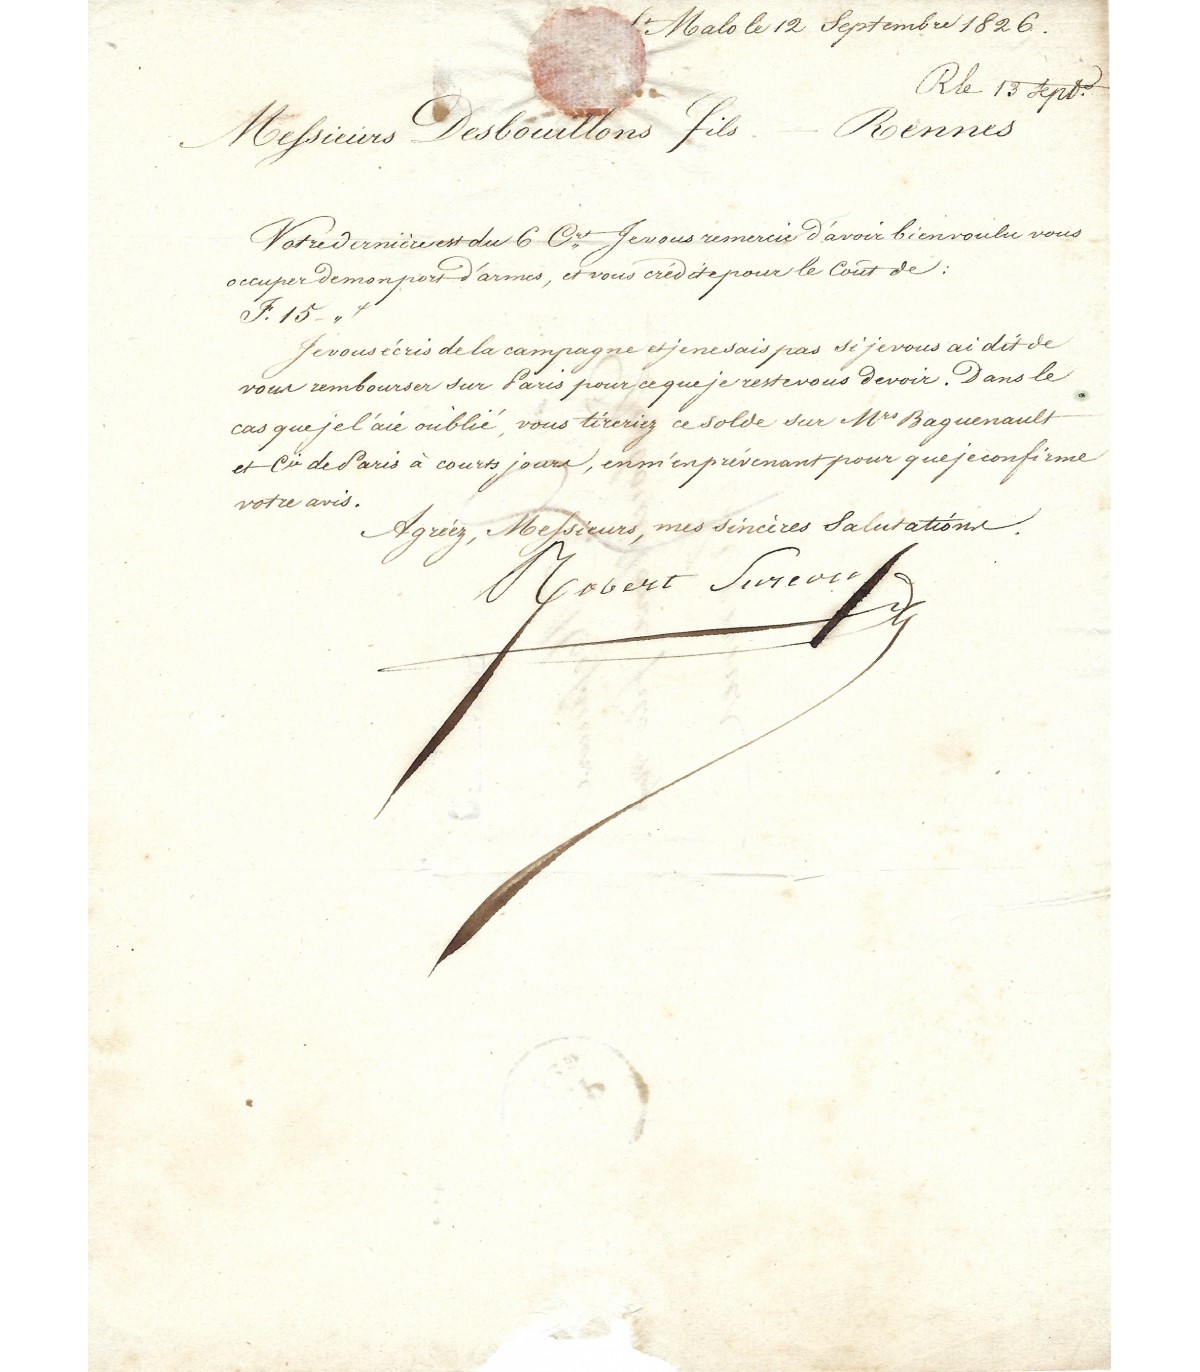 St Malo le 12 Septembre 1826.
R le 13 Sepbre
Messieurs Desbouillons fils — Rennes
Votre dernière est du 6 Crt Je vous remercie d'avoir bien voulu vous
occuper de mon port d'armes, et vous crédite pour le Coût de :
F. 15 - "
Je vous écris de la campagne et je ne sais pas si je vous ai dit de
vous rembourser sur Paris pour ce que je reste vous devoir. Dans le
cas que je l'aie oublié, vous tireriez ce solde sur Mrs Baguenault
et Cie de Paris à courts jours, en m'en prévenant pour que je confirme
votre avis.
Agréez, Messieurs, mes sincères Salutations.
Robert Surcouf